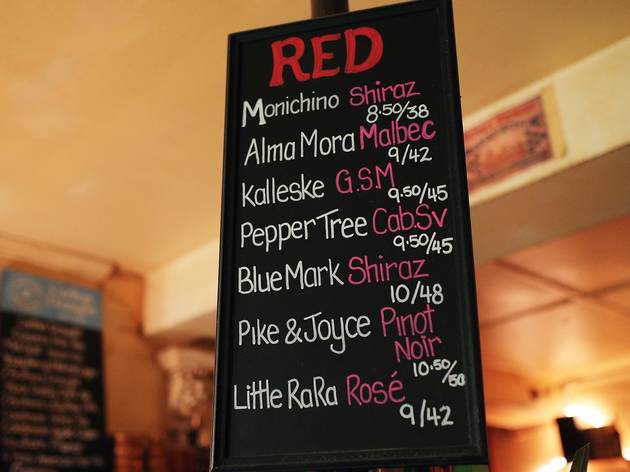 RED
Monichino Shiraz
8.50/38
Alma Mora Malbec
9/42
Kalleske G.S.M
9.50/45
Pepper Tree Cab.Sv
9.50/45
Blue Mark Shiraz
10/48
Pike & Joyce Pinot
Noir
10.50/50
Little RaRa Rosé
9/42